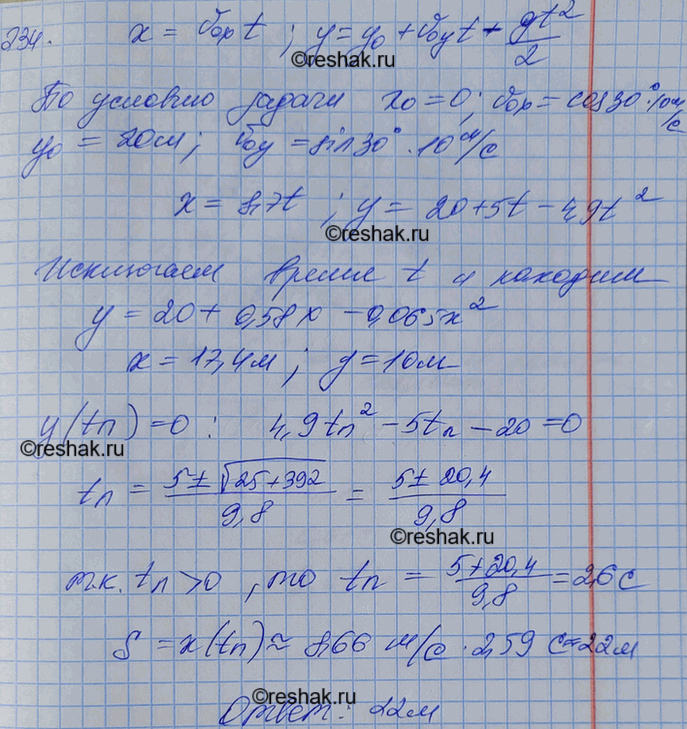 234. x = v₀ₓt ; y = y₀ + v₀yt - gt²/2
©reshak.ru
По условию задачи x₀ = 0; v₀ₓ = cos30° · 10 м/с
y₀ = 20м; v₀y = sin30° · 10 м/с
x = 8,7t ; y = 20 + 5t - 4,9t²
©reshak.ru
Исключаем время t и находим
y = 20 + 0,58x - 0,065x²
x = 17,4м ; y = 10м
y(tп) = 0 : 4,9tп² - 5tп - 20 = 0
©reshak.ru
tп = (5 ± √(25 + 392))/9,8 = (5 ± 20,4)/9,8
©reshak.ru
т.к. tп > 0 , то tп = (5 + 20,4)/9,8 = 2,6 с
S = x(tп) ≈ 8,66 м/с · 2,59 с = 22м
©reshak.ru
Ответ: 22м